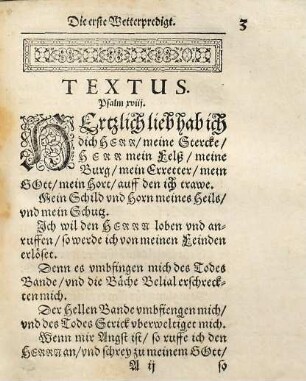 Die erste Wetterpredigt. 3
TEXTUS.
Psalm xviij.
HErtzlich lieb hab ich
dich HERR/meine Stercke/
HERR mein Felß/meine
Burg/mein Erretter/mein
GOtt/mein Hort/auff den ich trawe.
Mein Schild vnd Horn meines Heils/
vnd mein Schutz.
Ich wil den HERRN loben vnd an-
ruffen/so werde ich von meinen Feinden
erlöset.
Denn es vmbfingen mich des Todes
Bande/vnd die Bäche Belial erschreck-
ten mich.
Der Hellen Bande vmbfiengen mich/
vnd des Todes Strick vberweltiget mich.
Wenn mir Angst ist/so ruffe ich den
HERRN an/vnd schrey zu meinem GOtt/
A ij so